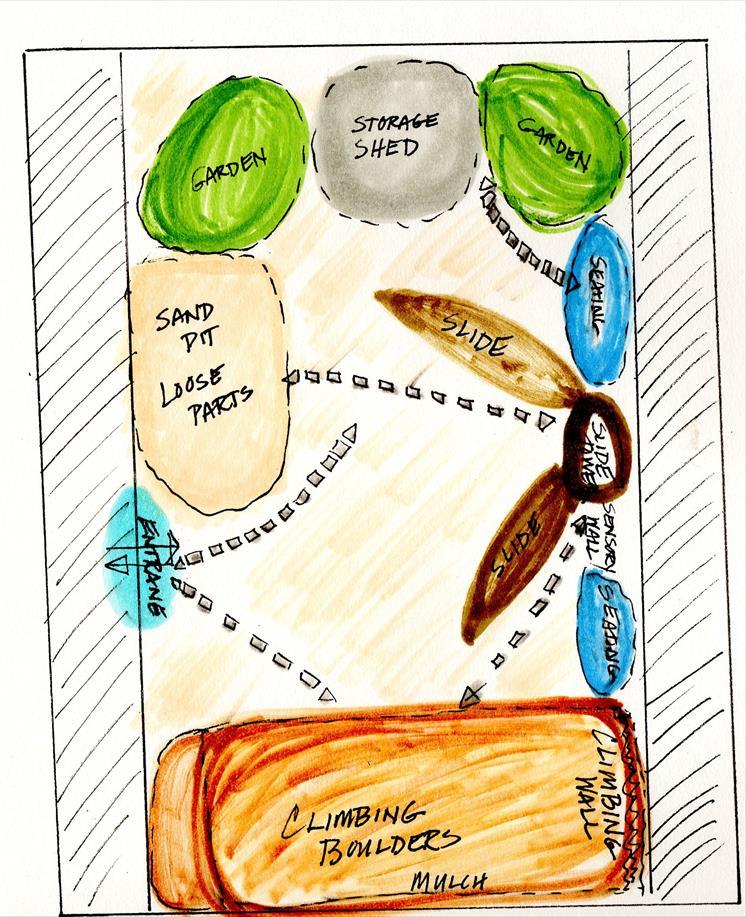 STORAGE
SHED
GARDEN
GARDEN
SEATING
SAND
PIT
LOOSE
PARTS
SLIDE
SLIDE
TOWER
SENSORY
WALL
SLIDE
ENTRANCE
SEATING
CLIMBING
WALL
CLIMBING
BOULDERS
MULCH